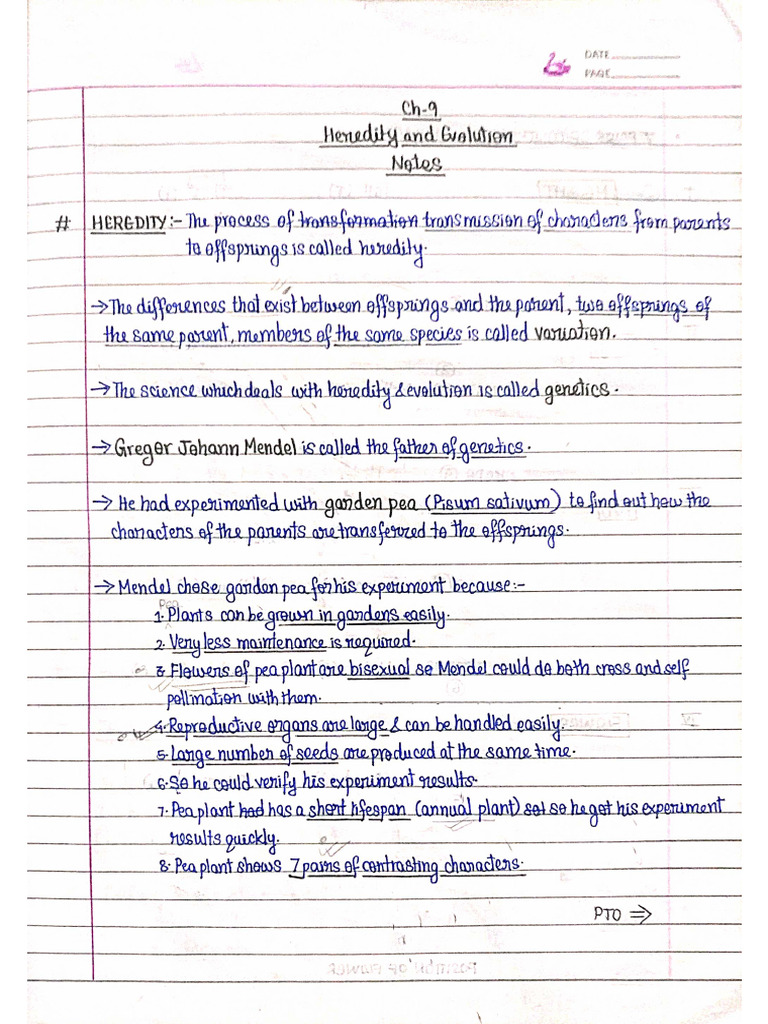 DATE
PAGE
Ch-9
Heredity and Evolution
Notes
# HEREDITY:- The process of transformation transmission of characters from parents
to offsprings is called heredity.
→ The differences that exist between offsprings and the parent, two offsprings of
the same parent, members of the same species is called variation.
→ The science which deals with heredity & evolution is called genetics.
→ Gregor Johann Mendel is called the father of genetics.
→ He had experimented with garden pea (Pisum sativum) to find out how the
characters of the parents are transferred to the offsprings.
→ Mendel chose garden pea for his experiment because:-
Pea
1. Plants can be grown in gardens easily.
2. Very less maintenance is required.
3. Flowers of pea plant are bisexual so Mendel could do both cross and self
pollination with them.
4. Reproductive organs are large & can be handled easily.
5. Large number of seeds are produced at the same time.
6. So he could verify his experiment results.
7. Pea plant had has a short lifespan (annual plant) sot so he got his experiment
results quickly.
8. Pea plant shows 7 pairs of contrasting characters.
PTO ⇒